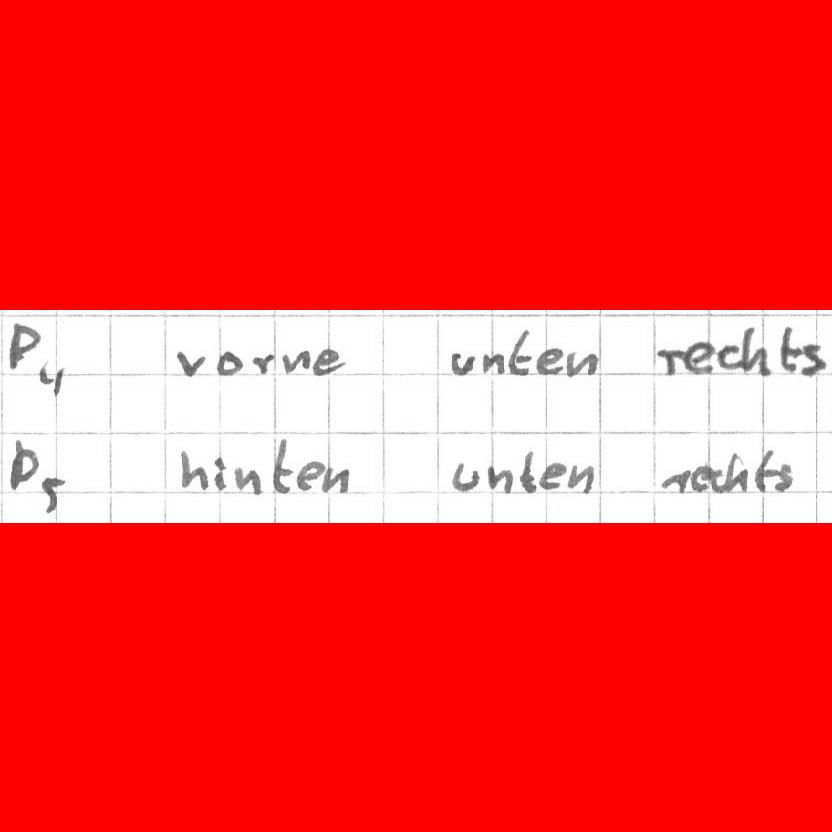 P₄ vorne unten rechts
P₅ hinten unten rechts